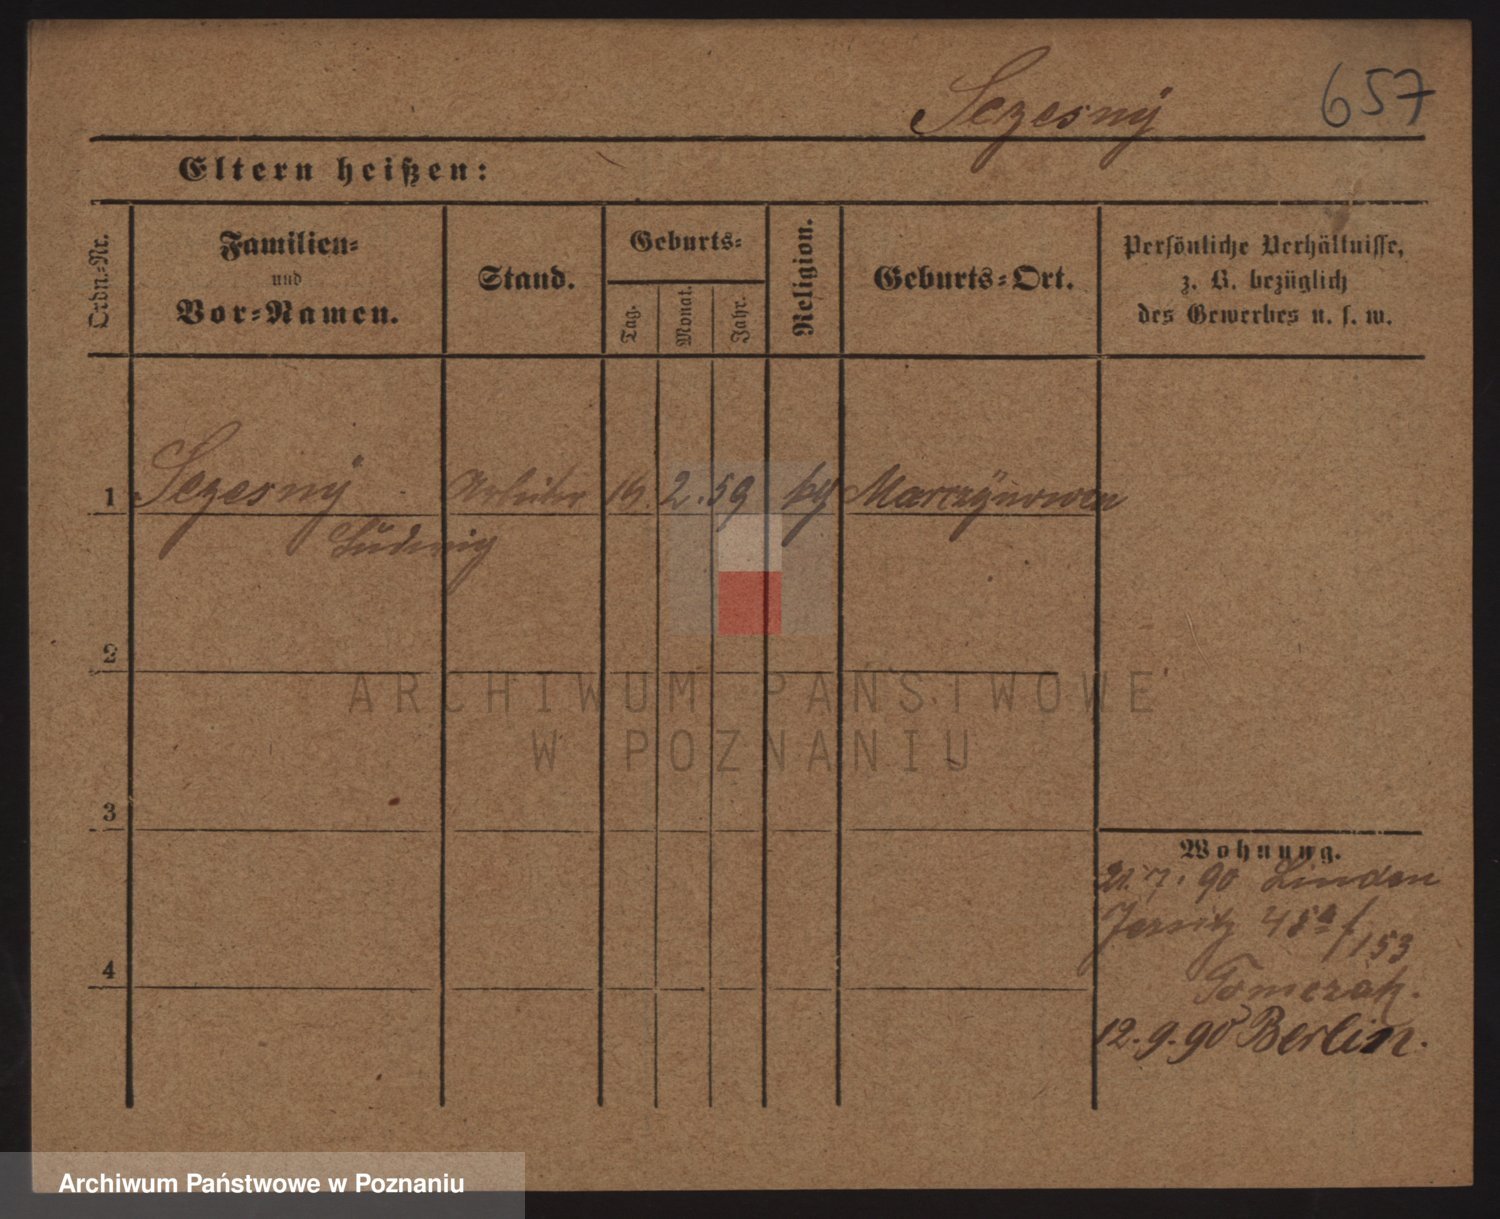 Sczesny 657
Eltern heißen:
Ordn.-Nr.
Familien-
und
Vor-Namen.
Stand.
Geburts-
Tag.
Monat.
Jahr.
Religion.
Geburts-Ort.
Persönliche Verhältnisse,
z. B. bezüglich
des Gewerbes u. s. w.
1 Sczesny Arbeiter 2. 59 kg
Ludwig
2
3
4
Wohnung.
21. 7. 90 Linden
Jersitz 45a/153
Tomczak.
12. 9. 90 Berlin.
ARCHIWUM PAŃSTWOWE
W POZNANIU
Archiwum Państwowe w Poznaniu